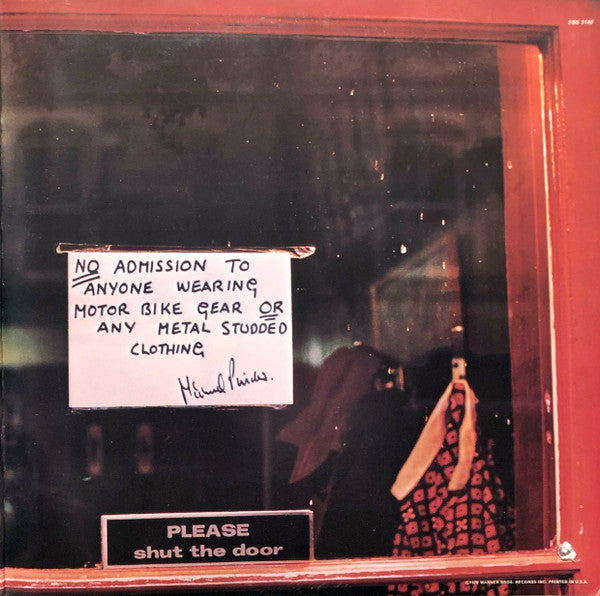 NO ADMISSION TO
ANYONE WEARING
MOTOR BIKE GEAR OR
ANY METAL STUDDED
CLOTHING
PLEASE
shut the door
©1976 WARNER BROS. RECORDS INC. PRINTED IN U.S.A.